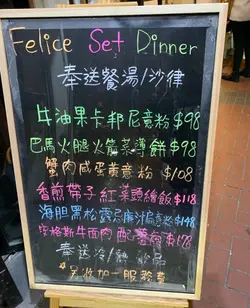 Felice Set Dinner
奉送餐湯/沙律
牛油果卡邦尼意粉 $98
巴馬火腿火箭菜薄餅 $98
蟹肉咸蛋黃意粉 $108
香煎帶子紅菜頭繪飯 $118
海胆黑松露忌廉汁意粉 $148
安格斯牛面肉配薯蓉 $148
奉送冷/熱飲品
*另收加一服務費